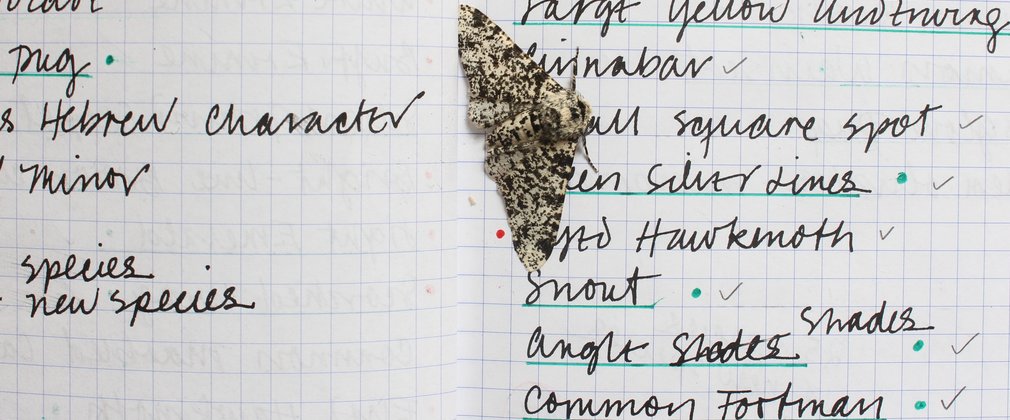 Pug
s Hebrew Character
Minor
species
new species
Large Yellow Underwing
Cinnabar ✓
all square spot ✓
een Silver Lines ✓
Hawkmoth ✓
Snout ✓
shades
Angle Shades ✓
Common Footman ✓